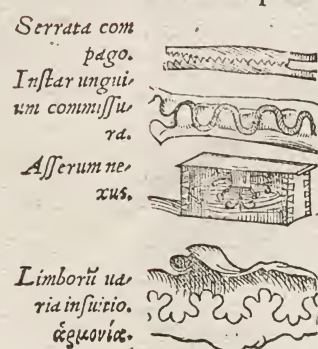 Serrata com
pago.
Inſtar ungui⸗
um commiſſu⸗
ra.
Aſſerum ne⸗
xus.
Limboriũ ua⸗
ria inſuitio.
ἁρμονία.